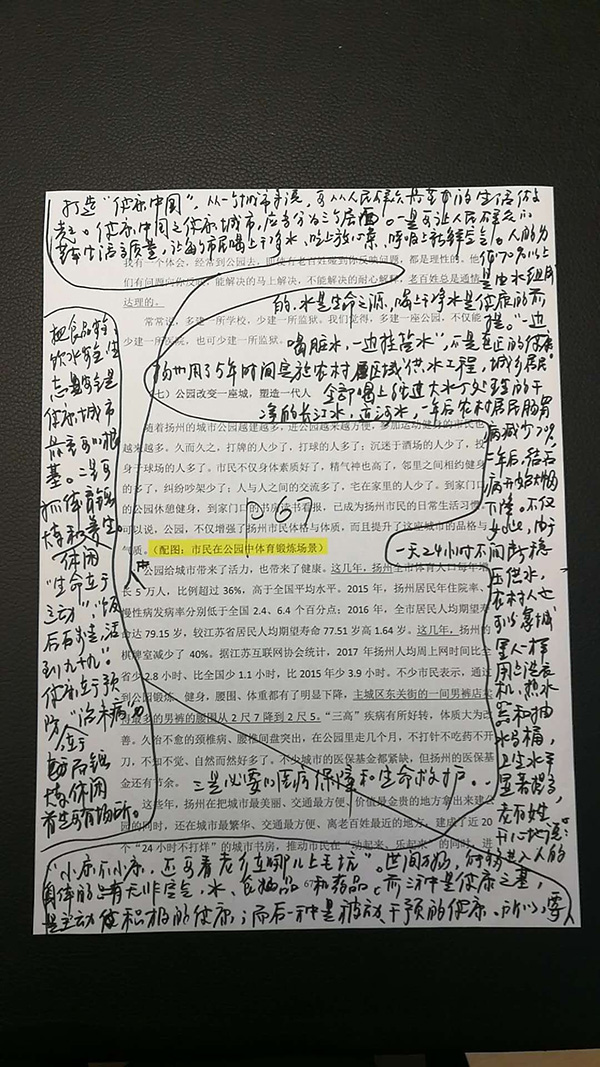 打造“健康中国”，从一个城市来说，要从人民群众最基本的生活做
起。健康中国之健康城市，应当分为三个层面。一是要让人民群众的
基本生活高质量，让每个市民喝上干净水、吃上放心菜、呼吸上新鲜空气。人的身
体70%以上
是由水组成
的，水是生命之源，喝上干净水是健康的前
提。“一边
喝脏水，一边挂盐水”，不是真正的健康。
扬州用了5年时间实施农村区域供水工程，城乡居民
全部喝上经过大水厂处理的干
净的长江水，
一年后农村居民肠胃
病减少了
年后，结石
病开始大幅
下降。不仅
如此，由于
一天24小时不间断稳
压供水，
农村人也
可以像城
里人一样
用上洗衣
机、热水
器和抽
水马桶，
卫生水平
显著提高，
老百姓
开心地说：
“小康不小康，还要看老乡在哪儿上毛坑”。世间万物，进入人的
身体的只有无非空气、水、食物品和药品，前三种是健康之基，
是主动健积极的健康；而后一种是被动、干预的健康。所以，要
把食品检
饮水安全、生
态安全是
健康城市
最重要的根
基。二是要
抓体育锻
炼和养生
休闲
“生命在于
运动”，“饭
后百步走，活
到九十九”。
健康在于预
防，“治未病”
锻
炼休闲
养生要有场所。
三是必要的医疗保障和生命救护。
P67
我有一个体会，经常到公园去，即使有老百姓碰到你反映问题，都是理性的。他
们有问题向你反映，能解决的马上解决，不能解决的耐心解释，老百姓总是通情
达理的。
常常说，多建一所学校，少建一所监狱。我们觉得，多建一座公园，不仅能
少建一所医院，也可少建一所监狱。
（七）公园改变一座城，塑造一代人
随着扬州的城市公园越建越多，进公园越来越方便，参加运动健身的市民也
越来越多。久而久之，打牌的人少了，打球的人多了；沉迷于酒场的人少了，投
身于球场的人多了。市民不仅身体素质好了，精气神也高了，邻里之间相约健身
的多了，纠纷吵架少了；人与人之间的交流多了，宅在家里的人少了。到家门口
的公园休憩健身，到家门口的书房读书看报，已成为扬州市民的日常生活习惯。
可以说，公园，不仅增强了扬州市民体格与体质，而且提升了这座城市的品格与
气质。（配图：市民在公园中体育锻炼场景）
公园给城市带来了活力，也带来了健康。这几年，扬州全市体育人口每年增
长5万人，比例超过36%，高于全国平均水平。2015年，扬州居民年住院率、
慢性病发病率分别低于全国2.4、6.4个百分点；2016年，全市居民人均期望寿
命达79.15岁，较江苏省居民人均期望寿命77.51岁高1.64岁。这几年，扬州的
棋牌室减少了40%。据江苏互联网协会统计，2017年扬州人均周上网时间比全
省少2.8小时、比全国少1.1小时，比2015年少3.9小时。不少市民表示，通过
到公园锻炼、健身，腰围、体重都有了明显下降，主城区东关街的一间男裤店卖
得最多的男裤的腰围从2尺7降到2尺5。“三高”疾病有所好转，体质大为改
善。久治不愈的颈椎病、腰椎间盘突出，在公园里走几个月，不打针不吃药不开
刀，不知不觉、自然而然好多了。不少城市的医保基金都紧缺，但扬州的医保基
金还有节余。
这些年，扬州在把城市最美丽、交通最方便、价值最金贵的地方拿出来建公
园的同时，还在城市最繁华、交通最方便、离老百姓最近的地方，建成了近20
个“24小时不打烊”的城市书房，推动市民在“动起来、乐起来”的同时，进
67